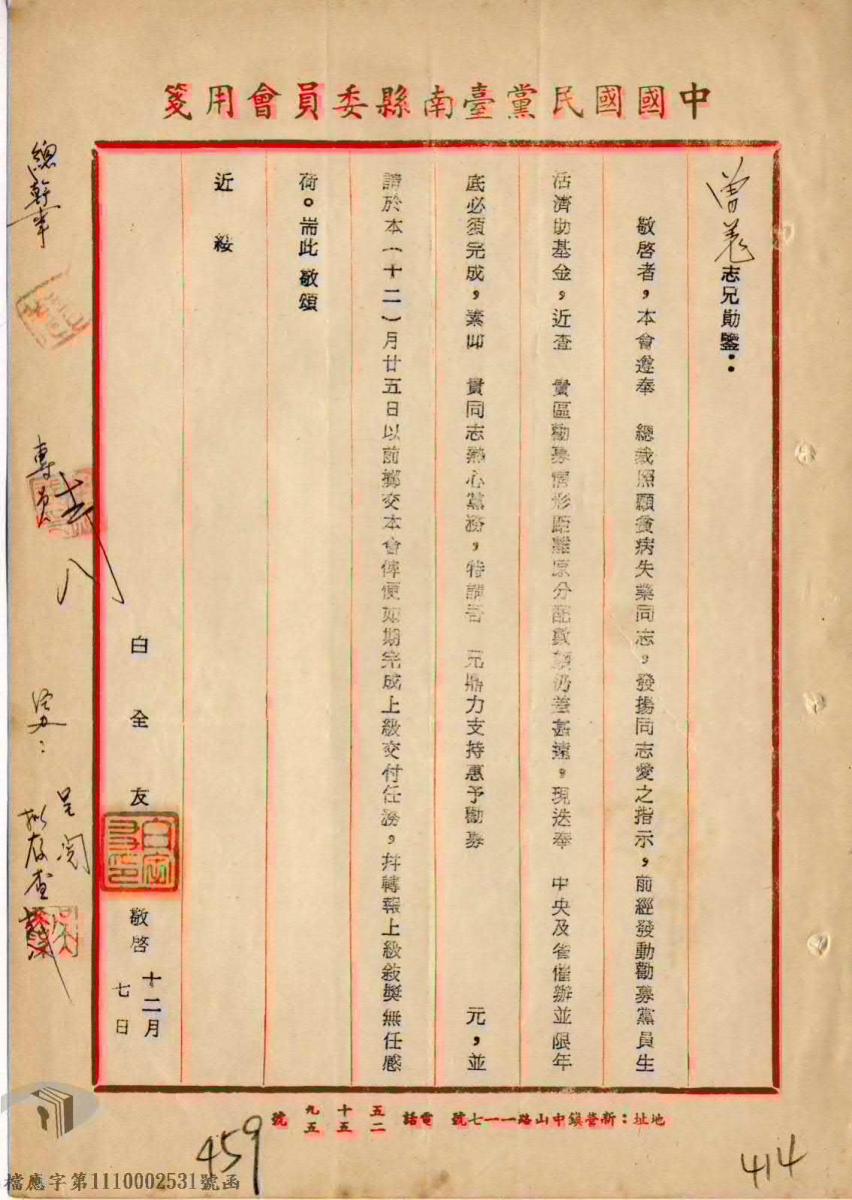 中國國民黨臺南縣委員會用箋
曾義志兄勛鑒：
敬啓者，本會遵奉　總裁照顧貧病失業同志，發揚同志愛之指示，前經發動勸募黨員生
活濟助基金，近查　貴區勸募情形距離原分配數額仍差甚遠，現迭奉　中央及省催辦並限年
底必須完成，素仰　貴同志熱心黨務，特請吾　兄鼎力支持惠予勸募　　　　元，並
請於本（十二）月廿五日以前擲交本會俾便如期完成上級交付任務，并轉報上級敘獎無任感
荷。耑此 敬頌
近　綏
白全友
敬啓
十二月
七日
總幹事
專員
呈閱
擬存查
地址：新營鎮中山路一一七號　電話五二 十五 九五號
459
414
檔應字第1110002531號函